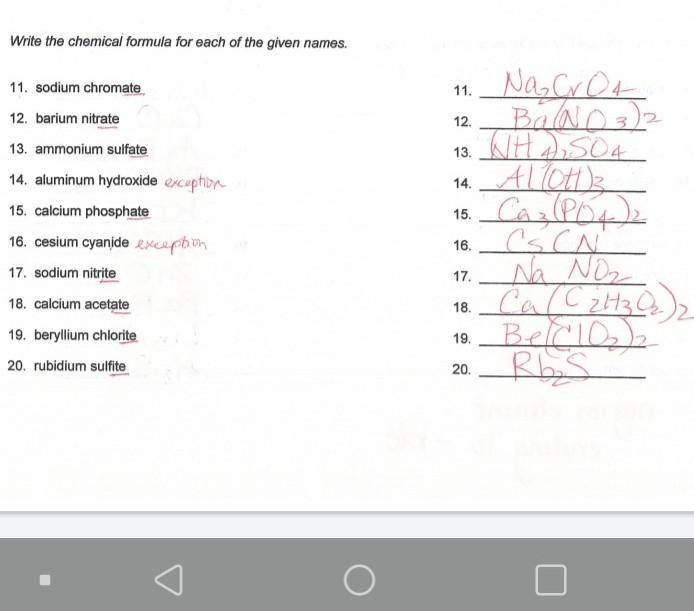 Write the chemical formula for each of the given names.
11. sodium chromate 11. Na₂CrO4
12. barium nitrate 12. Ba(NO3)2
13. ammonium sulfate 13. (NH4)₂SO4
14. aluminum hydroxide exception 14. Al(OH)3
15. calcium phosphate 15. Ca3(PO4)2
16. cesium cyanide exception 16. CsCN
17. sodium nitrite 17. Na NO2
18. calcium acetate 18. Ca(C2H3O2)2
19. beryllium chlorite 19. Be(ClO2)2
20. rubidium sulfite 20. Rb2S